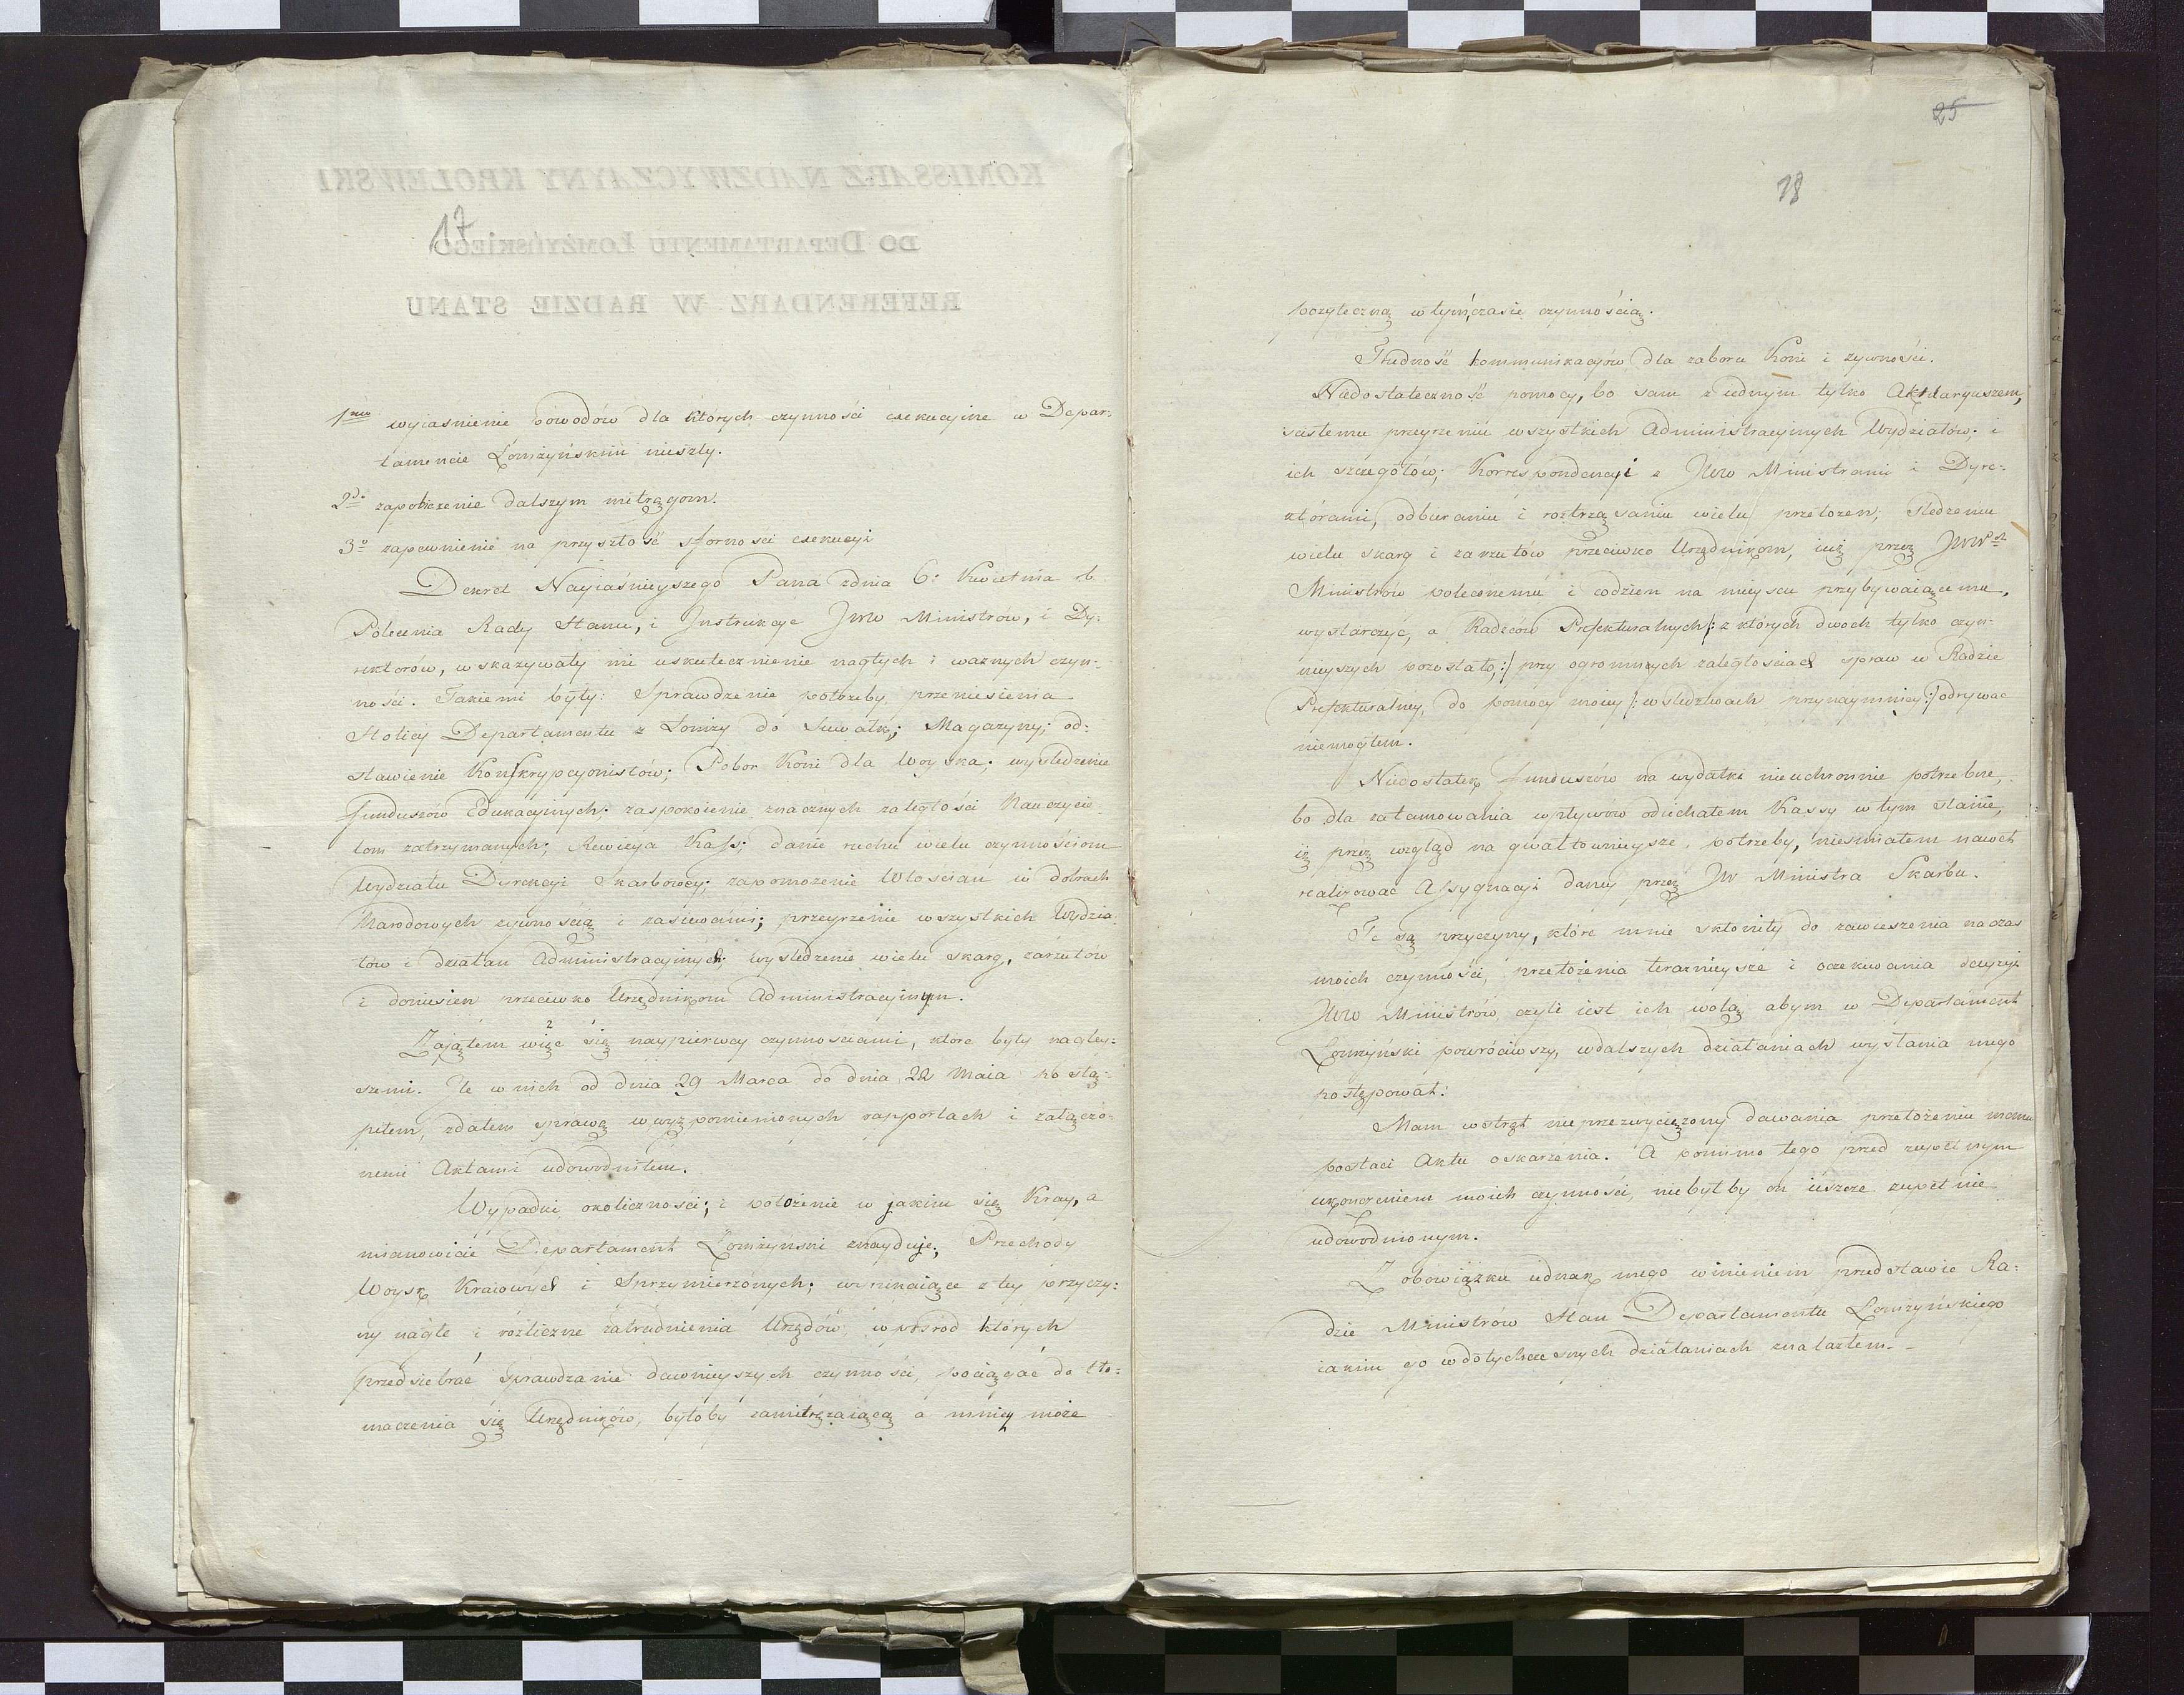 17
1mo wyiasnienie dowodów dla których czynności exekucyine w Depar-
tamencie Łomżyńskim nieszły.
2do zapobieżenie dalszym mitręgom.
3o zapewnienie na przyszłość sforności exekucyi
Dekret Nayiaśnieyszego Pana zdnia 6o Kwietnia rb
Polecenia Rady Stanu, i Instrukcye JWW Ministrów, i Dy-
rektorów, wskazywały mi uskutecznienie nagłych i ważnych czyn-
ności. Takiemi były: Sprawdzenie potrzeby przeniesienia
Stolicy Departamentu z Łomży do Suwałk; Magazyny; od-
stawienie Konskrypcyonistów; Pobor Koni dla Woyska; wyśledzenie
funduszów Edukacyinych; zaspokoienie znacznych zaległości Nauczycie-
lom zatrzymanych; Rewizya Kass; danie ruchu wielu czynnościom
Wydziału Dyrekcyi Skarbowey; zapomożenie Włościan w dobrach
Narodowych żywnością i zasiewami; przeyrzenie wszystkich Wydzia-
łów i działań Administracyinych; wyśledzenie wielu skarg, zarzutów
i doniesień przeciwko Urzędnikom Administracyinym.
Zająłem więc się naypierwey czynnościami, które były nagley-
szemi. Ile w nich od dnia 29 Marca do dnia 22 Maia rb stą-
piłem, zdałem sprawę w wyż pomienionych rapportach i załączo-
nemi Aktami udowodniłem.
Wypadki okoliczności; i położenie w jakim się Kray, a
mianowicie Departament Łomżyński znayduje; Przechody
Woysk Kraiowych i Sprzymierzonych; wynikaiące z tey przyczy-
ny nagłe i rozliczne zatrudnienia Urzędów, wpośród których
przedsiebrać sprawdzanie dawnieyszych czynności, pociągać do tło-
maczenia się Urzędników, byłoby zamitrężaiącą a mniey może
25
18
pożyteczną w tymczasie czynnością.
Trudność kommunikacyów dla zaboru Koni i żywności.
Niedostateczność pomocy, bo sam z iednym tylko Aktuaryuszem,
scisłemu przeyrzeniu wszystkich Administracyinych Wydziałów, i
ich szczegółów; Korrespondencyi z JWW Ministrami i Dyre-
którami, odbieraniu i roztrząsaniu wielu przełożeń; śledzeniu
wielu skarg i zarzutów przeciwko Urzędnikom, iuż przez JWW
Ministrów poleconemu i codzień na mieyscu przybywaiącemu,
wystarczyć, a Radzców Prefekturalnych /: z których dwoch tylko czyn-
nieyszych pozostało, :/ przy ogromnych zaległościach spraw w Radzie
Prefekturalney, do pomocy moiey /: w śledztwach przynaymniey :/ odrywać
niemogłem.
Niedostatek funduszów na wydatki nieuchronnie potrzebne,
bo dla zatamowania wpływów odiechałem Kassy w tym stanie,
iż przez wzgląd na gwałtownieysze potrzeby, nieśmiałem nawet
realizować Assygnacyi daney przez JW Ministra Skarbu.
Te są przyczyny, które mnie skłoniły do zawieszenia na czas
moich czynności, przełożenia terazniéysze i oczekiwania decyzyi
JWW Ministrów, czyli iest ich wolą abym w Departament
Łomżyński powróciwszy, wdalszych działaniach wysłania mego
postępował:
Mam wstręt nieprzezwyciężony dawania przełożeniu memu
postaci Aktu oskarżenia. A pomimo tego przed zupełnym
ukończeniem moich czynności, niebyłby on ieszcze zupełnie
udowodnionym.
Z obowiązku iednak mego winienem przedstawić Ra-
dzie Ministrów Stan Departamentu Łomżyńskiego
iakim go wdotychczesnych działaniach znalazłem.